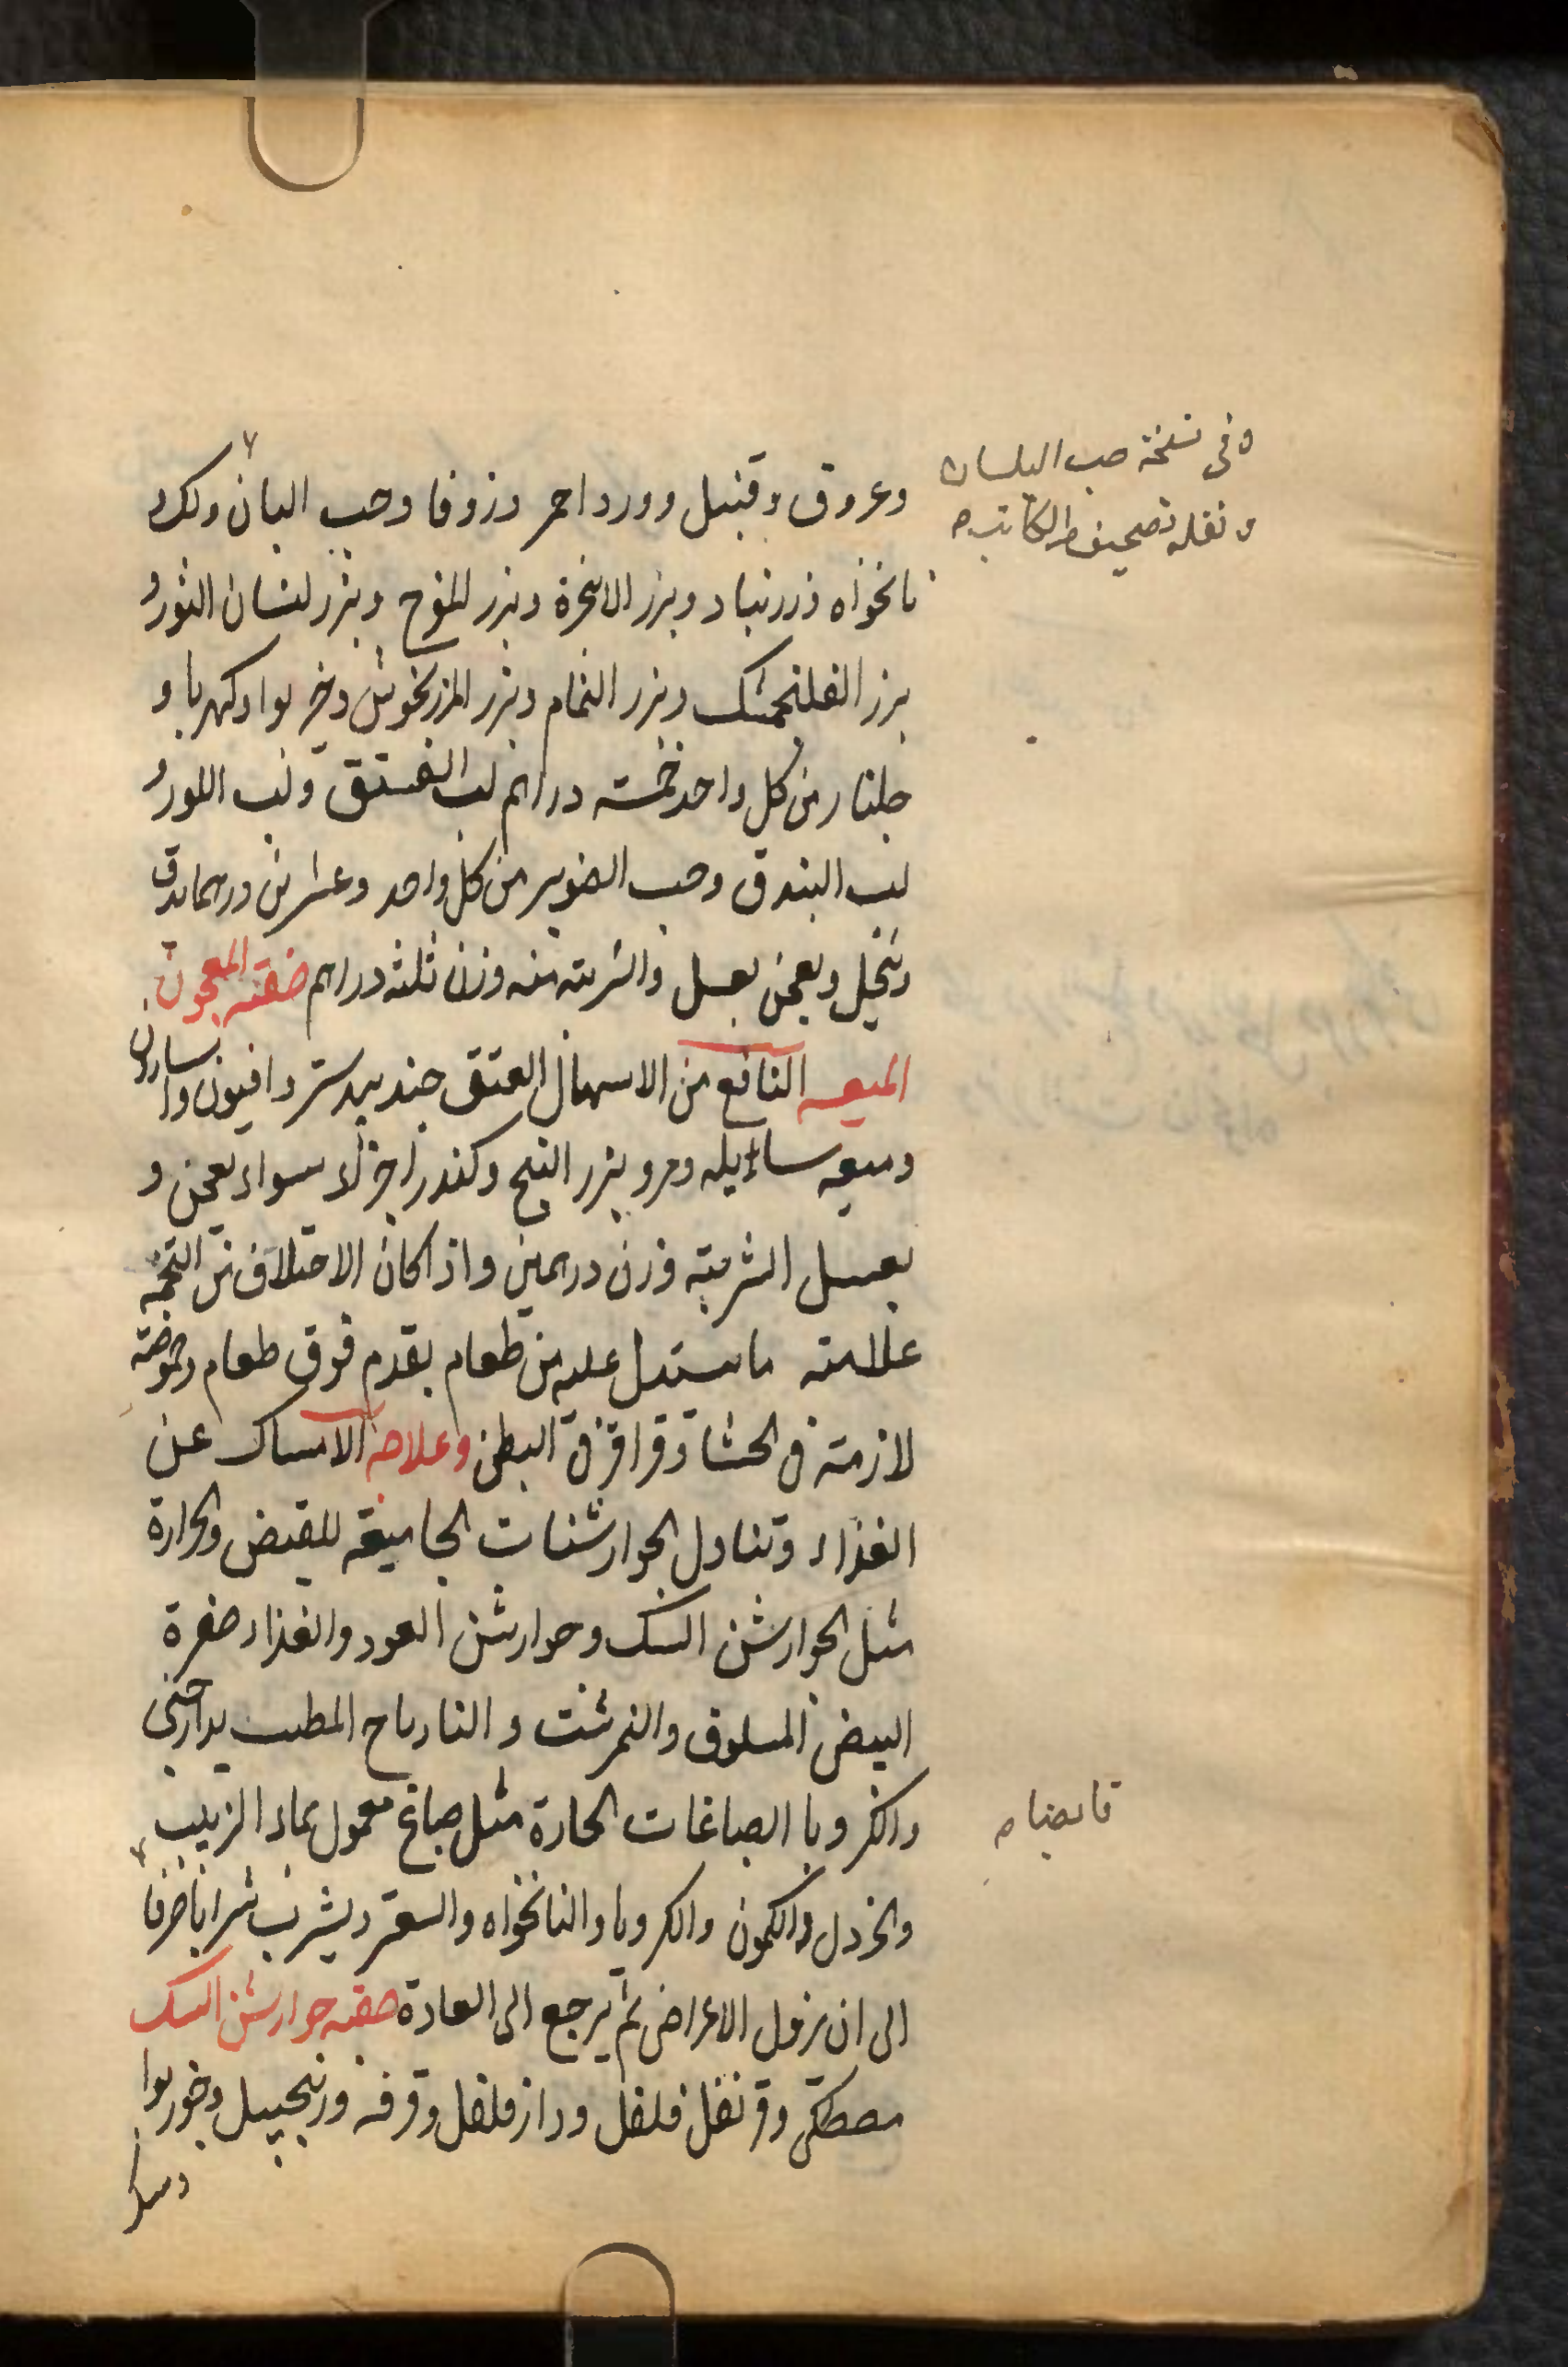 وعروق وقنبيل وورد احمر وزوفا وحب البان ولك
نانخواه وزرنباد وبزر الانجرة وبزر المرّوح وبزر لسان الثور و
بزر الفلنجمشك وبزر النمام وبزر المرزنجوش وخير بوا وكهربا و
جلنار من كل واحد خمسة دراهم لب الفستق ولب اللوز و
لب البندق وحب الصنوبر من كل واحد وعشرين درهما يدق
وينخل ويعجن بعسل والشربة منه وزن ثلثة دراهم صفة المعجون
الميعه النافع من الاسهال العتق جندبيدستر وافيون واسارون
وميعه سائله ومر وبزر البنج وكندر اجزاء سواء يعجن و
بعسل الشربة وزن درهمين واذا كان الاختلاف من التخمه
علامته ما يستدل عليه من طعام يقدم فوق طعام وحموضة
لازمة فى الحشا وقراقر فى البطن وعلاجه الامساك عن
الغذاء وتناول الجوارشنات الجامعة للقبض والحرارة
مثل الجوارشن السك وجوارشن العود والغذاء صفرة
البيض المسلوق والنمرشت والنارباج المطيب بدارچينى
والكرويا الصباغات الحارة مثل صباغ معمول بماء الزبيب
والخردل والكمون والكرويا والنانخواه والسعتر ويشرب شرابا صرفا
الى ان يزول الاعراض ثم يرجع الى العادة صفة جوارشن السك
مصطكى وقرنفل فلفل ودارفلفل وقرفه وزنجبيل وخيربوا
وسكر
وفى نسخة حب البلسان
ونقله تصحيف الكاتب
قابضا م